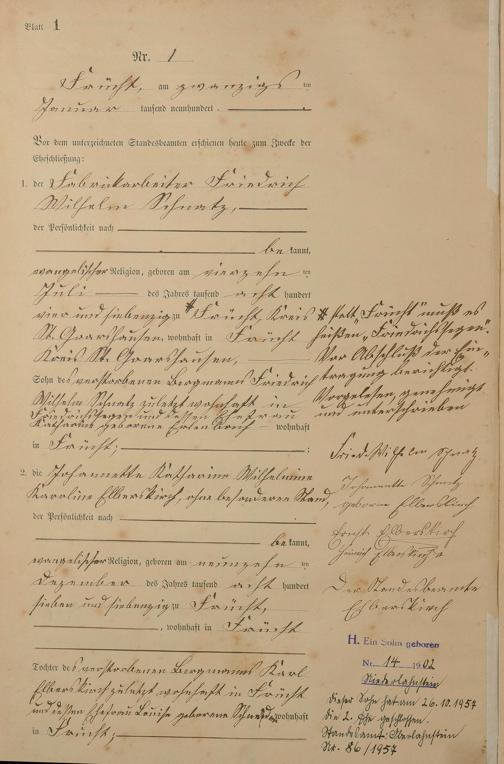 Blatt 1
Nr. 1
Frücht, am zwanzigs ten
Januar tausend neunhundert.
Vor dem unterzeichneten Standesbeamten erschienen heute zum Zwecke der
Eheschließung:
1. der Fabrikarbeiter Friedrich
Wilhelm Schnatz,
der Persönlichkeit nach
be kannt,
evangelischer Religion, geboren am vierzehn ten
Juli des Jahres tausend acht hundert
vier und siebenzig zu # Frücht, Kreis
St. Goarshausen, wohnhaft in Frücht
Kreis St. Goarshausen,
Sohn des verstorbenen Bergmanns Friedrich
Wilhelm Schnatz zuletzt wohnhaft in
Friedrichssegen und dessen Ehefrau
Katharine geborene wohnhaft
in Frücht;
2. die Johannette Katharine Wilhelmine
Karoline Elberskirch, ohne besonderen Stand,
der Persönlichkeit nach
be kannt,
evangelischer Religion, geboren am neunzehn ten
Dezember des Jahres tausend acht hundert
sieben und siebenzig zu Frücht,
, wohnhaft in Frücht
Tochter des verstorbenen Bergmanns Karl
Elberskirch zuletzt wohnhaft in Frücht
und dessen Ehefrau Louise geborene Schneider wohnhaft
in Frücht;
# statt "Frücht" muß es
heißen "Friedrichssegen".
Vor Abschluß der Ein-
tragung berichtigt.
Vorgelesen, genehmigt
und unterschrieben
Fried. Wilhelm Schnatz
Johannette Schnatz
geborene Elberskirch
Elberskirch
Der Standesbeamte
Elberskirch
H. Ein Sohn geboren
Nr. 14 1902
Niederlahnstein
Dieser Sohn hat am 26.10.1957
die 2. Ehe geschlossen.
Standesamt: Oberlahnstein
Nr. 86/1957